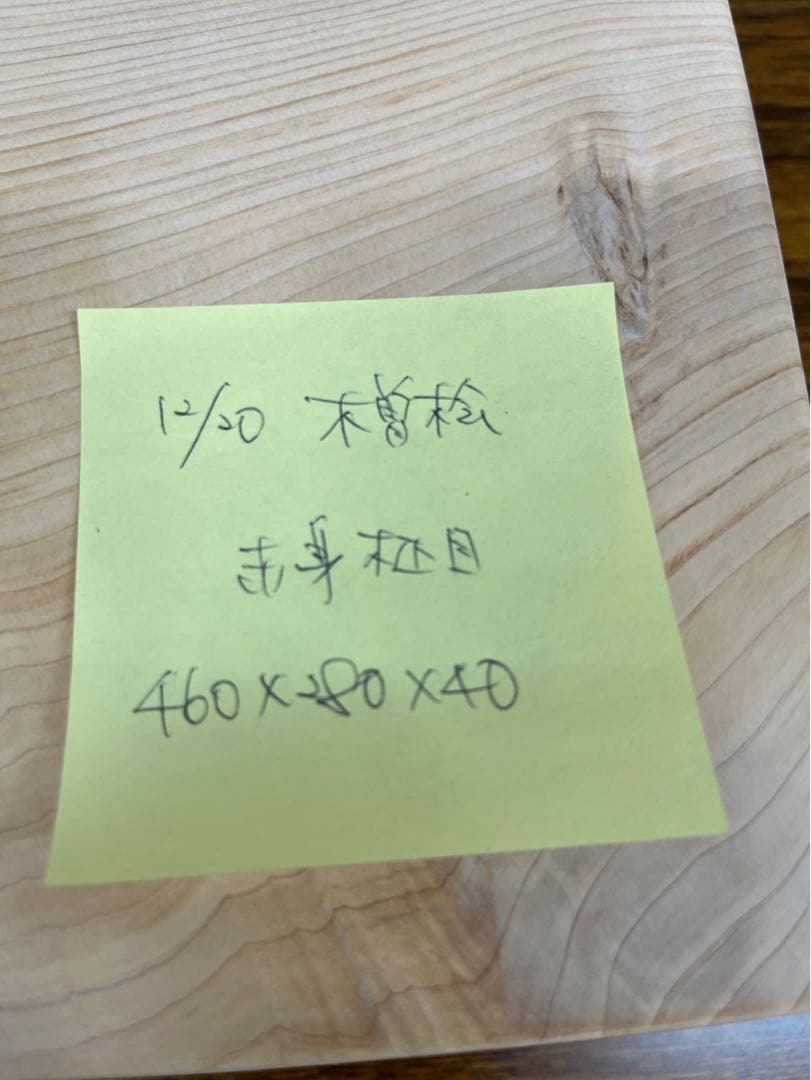 12/20 木曽桧
赤身柾目
460×280×40